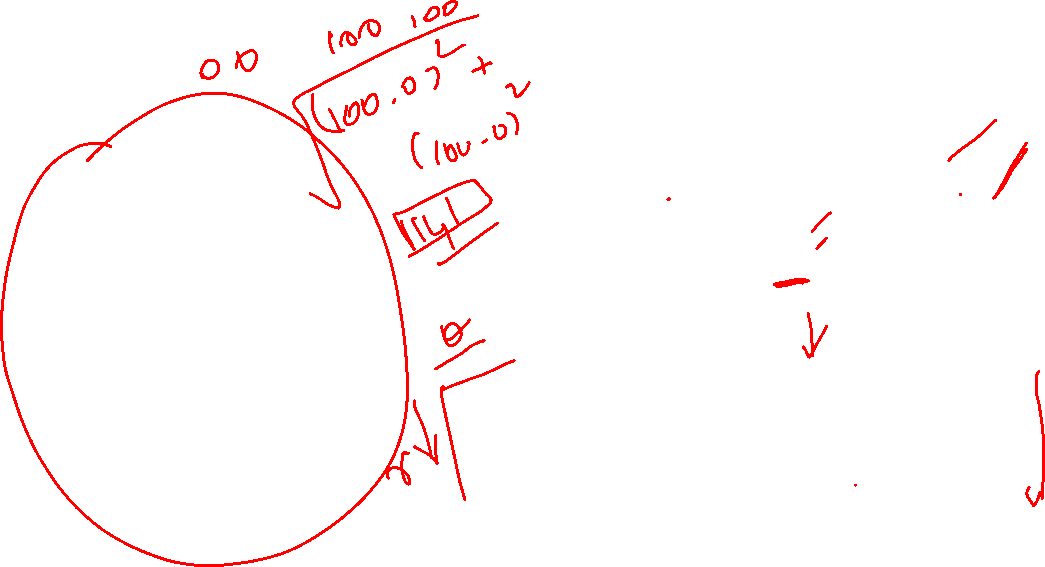 0 0
100 100
(100.0)² +
(100-0)²
141
θ
r